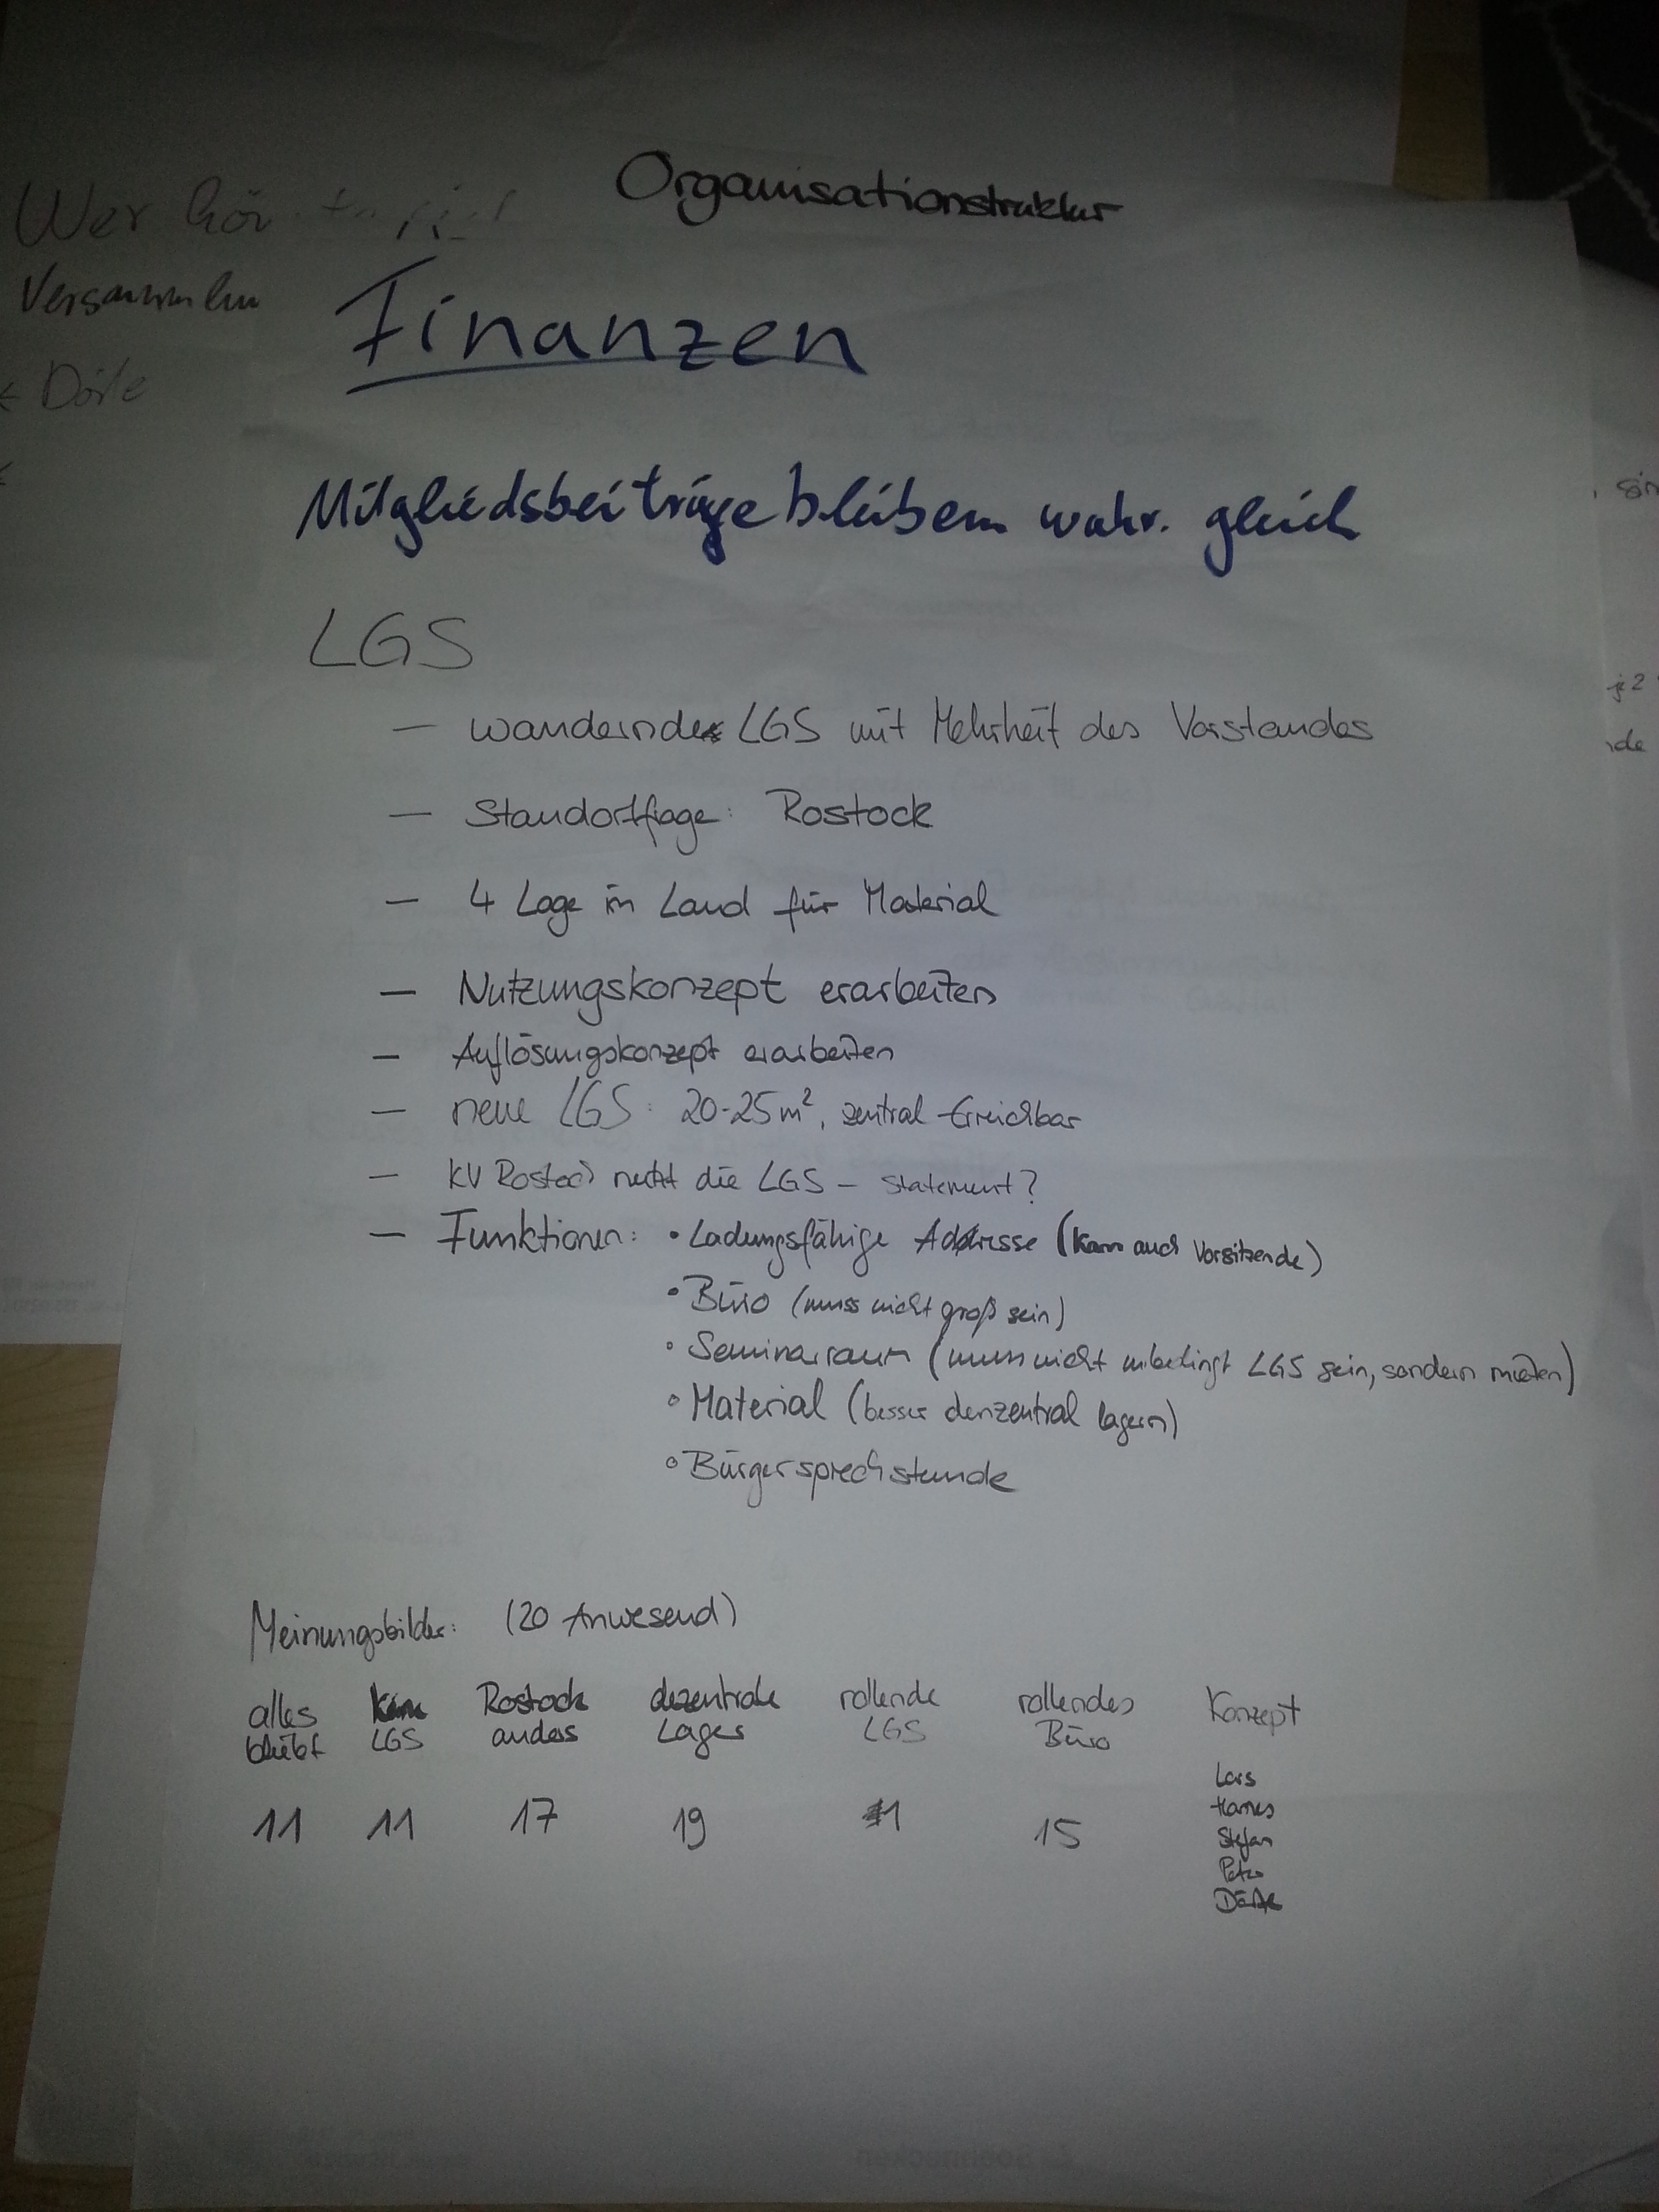 Organisationstruktur
Wer
Finanzen
Mitgliedsbeiträge bleiben wahr. gleich
LGS
– wandernde LGS mit Mehrheit des Vorstandes
– Standortfrage: Rostock
– 4 Lage in Land für Material
– Nutzungskonzept erarbeiten
– Auflösungskonzept erarbeiten
– neue LGS: 20-25m², zentral Erreichbar
– KV Rostock die LGS – statement?
– Funktionen: • Ladungsfähige Adresse (kann auch Vorsitzende)
• Büro (muss nicht groß sein)
• Seminarraum (muss nicht unbedingt LGS sein, sondern mieten)
• Material (besser denzentral lagern)
• Bürgersprechstunde
Meinungsbilder: (20 Anwesend)
alles bleibt
keine LGS
Rostock anders
dezentrale Lager
rollende LGS
rollendes Büro
Konzept
11 11 17 19 1 15
Lars
Hannes
Stefan
Petra
Dörte